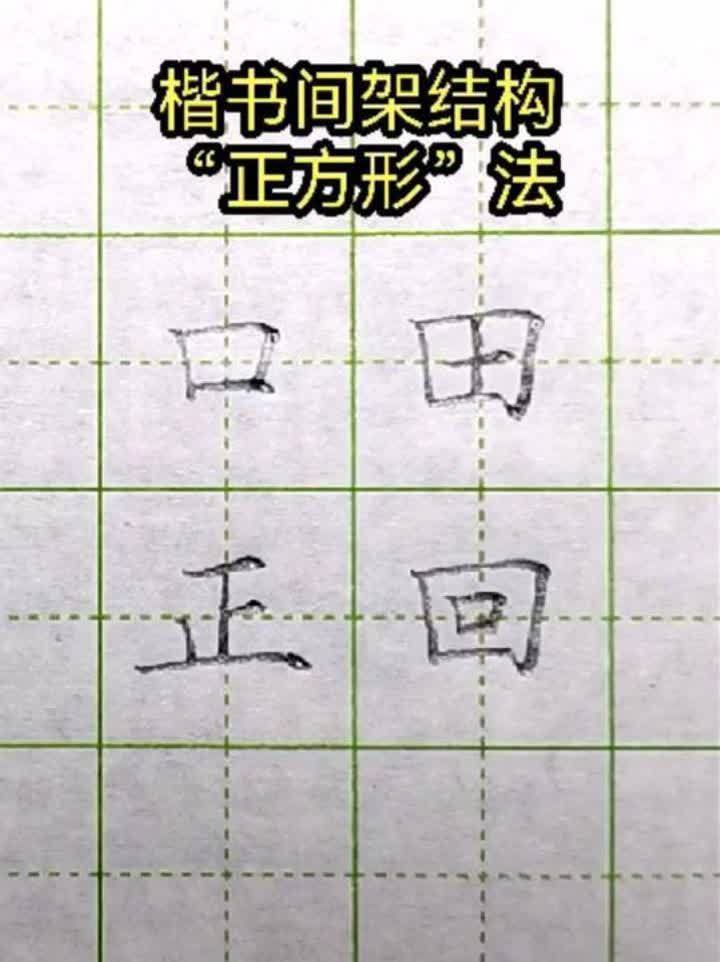 楷书间架结构
“正方形”法
口 田
正 回